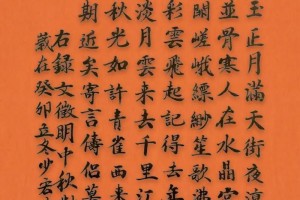 玉正月滿天街夜涼
並骨寒人在水晶宮
闕嵯峨縹緲笙歌沸
彩雲飛起記得去年
淡月雲來去千里江
秋光如許青雀西來
期近矣寄言儔侶莫
右錄文徵明中秋對
歲在癸卯立冬少